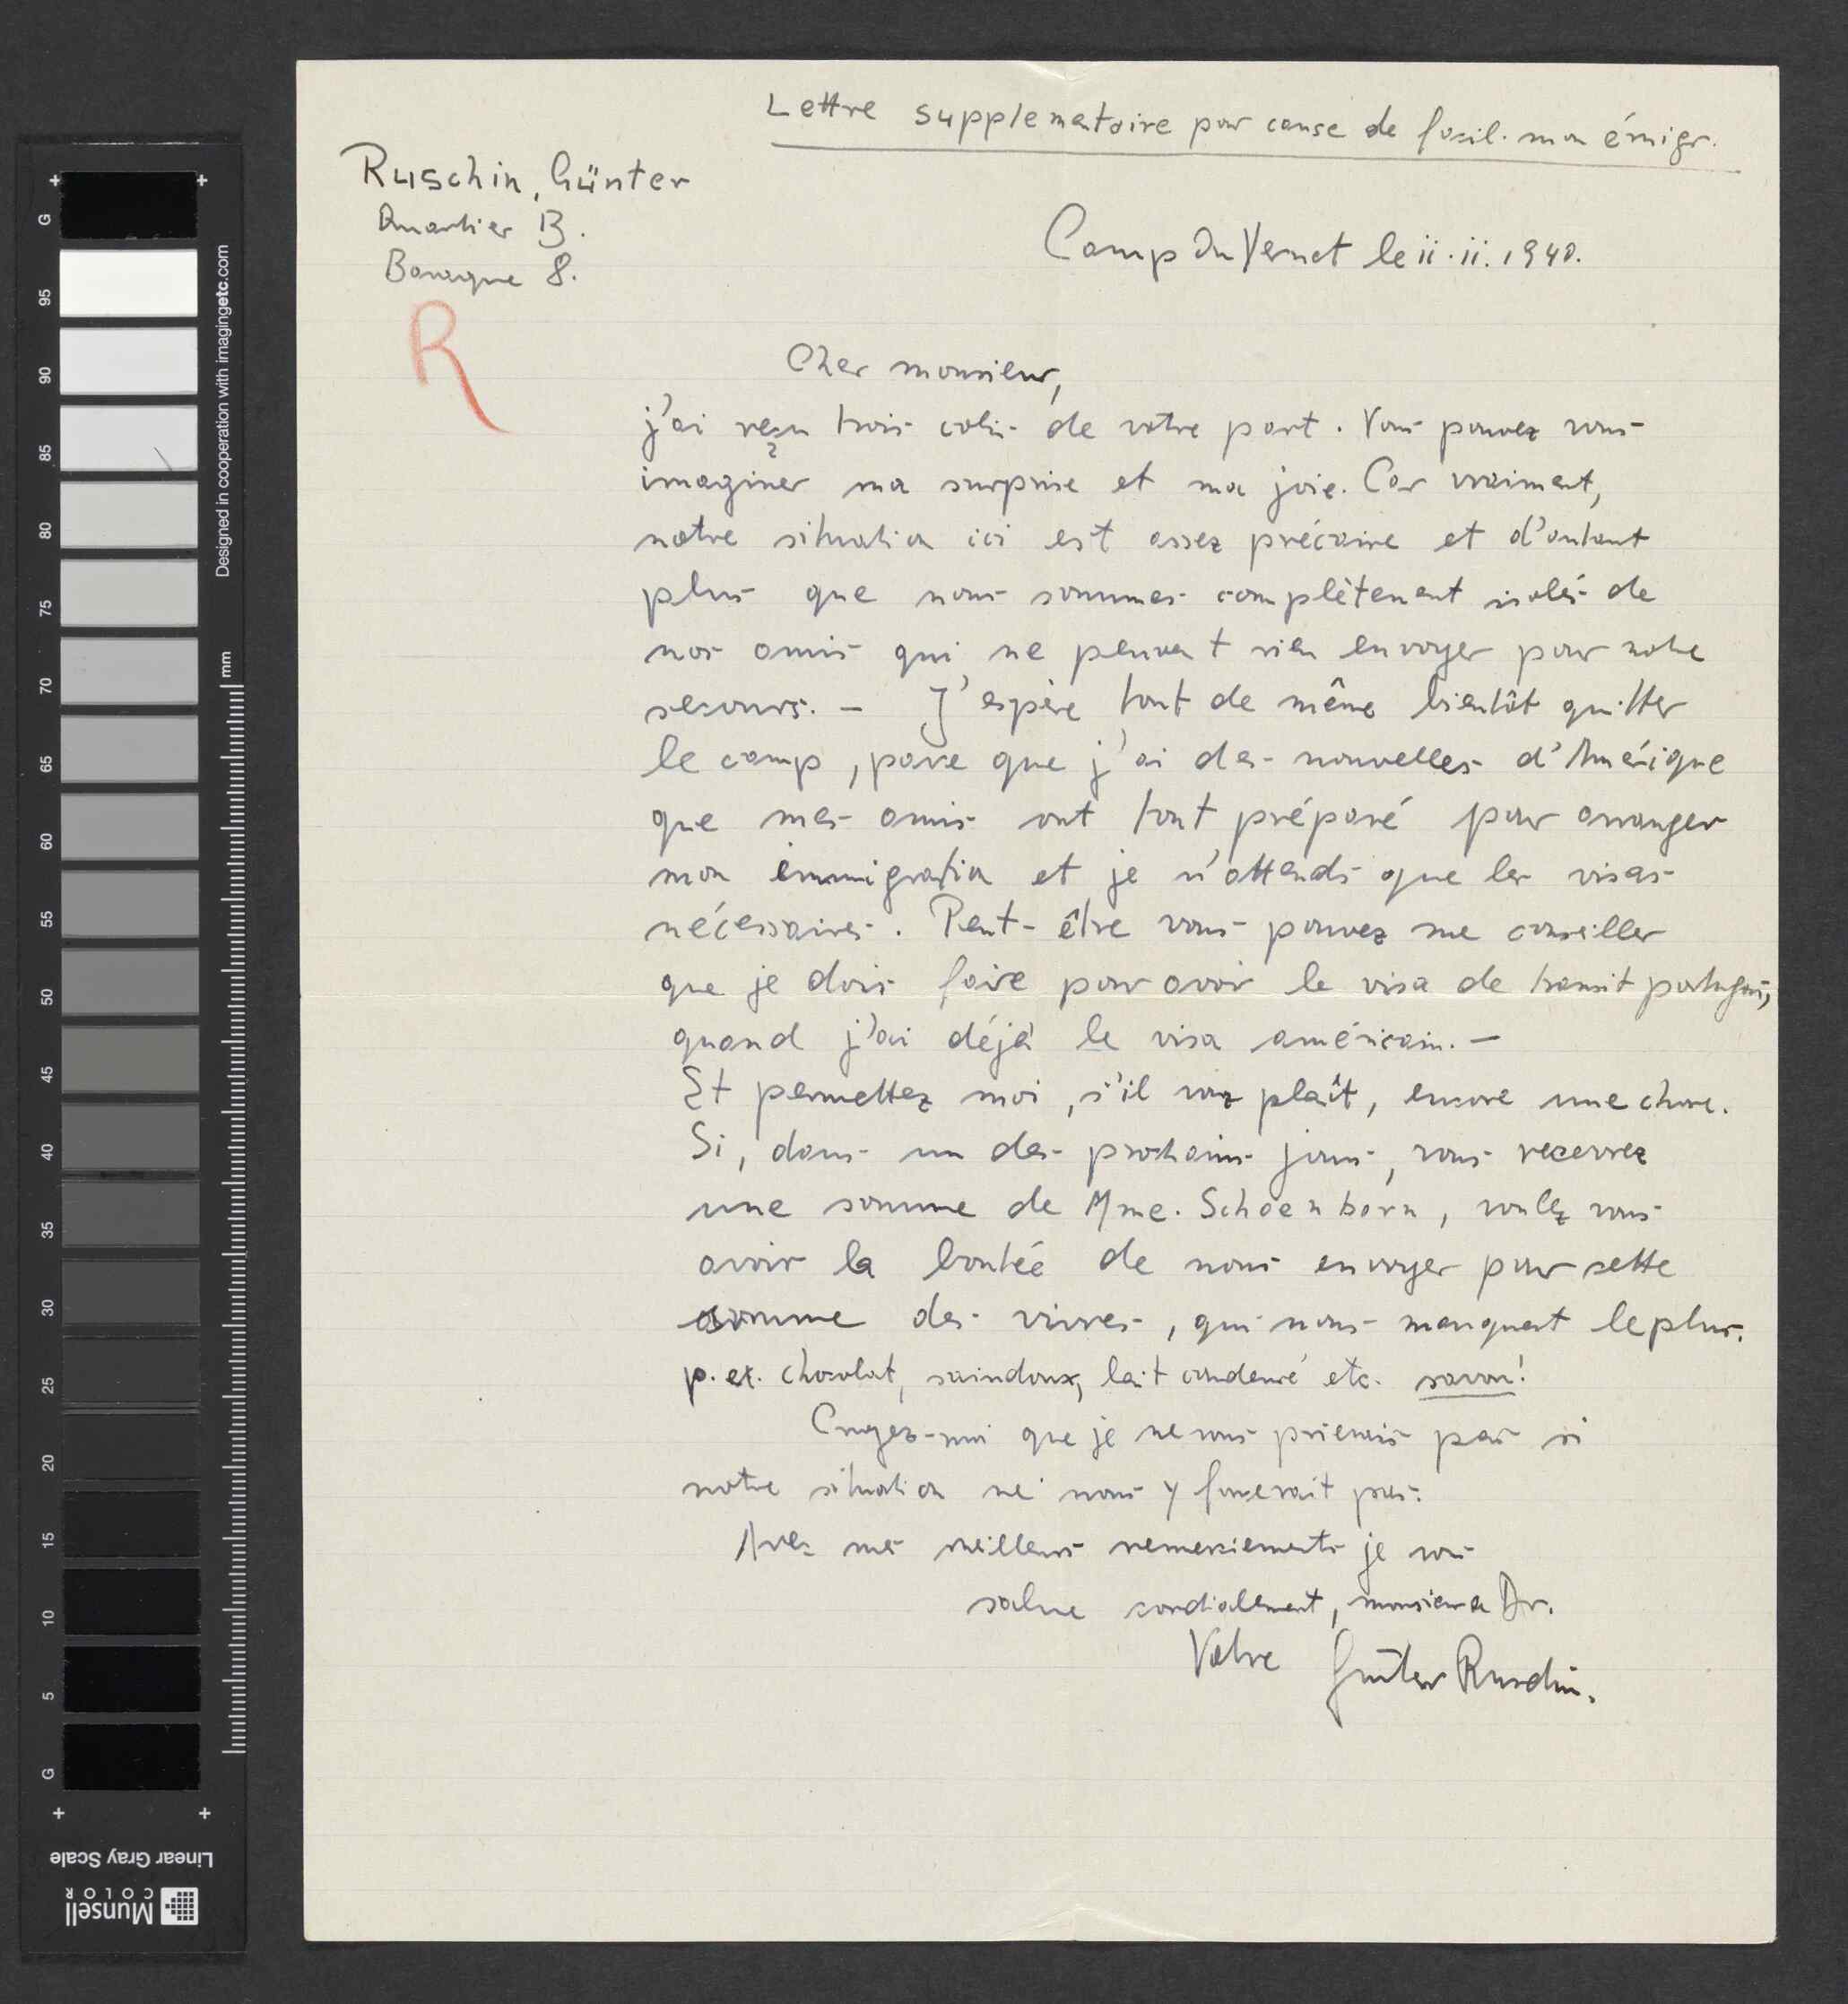 Lettre supplementaire pour cause de facil. mon émigr.
Ruschin, Günter
Quartier B.
Baraque 8.
R
Camp du Vernet le 11.11.1940.
Cher monsieur,
j'ai reçu trois colis de votre part. Vous pouvez vous
imaginer ma surprise et ma joie. Car vraiment,
notre situation ici est assez précaire et d'autant
plus que nous sommes complètement isolés de
nos amis qui ne peuvent rien envoyer pour notre
secours. – J'espère tout de même bientôt quitter
le camp, parce que j'ai des nouvelles d'Amérique
que mes amis ont tout préparé pour arranger
mon immigration et je n'attends que les visas
nécessaires. Peut-être vous pouvez me conseiller
que je dois faire pour avoir le visa de transit portugais,
quand j'ai déjà le visa américain. –
Et permettez moi, s'il vous plaît, encore une chose.
Si, dans un des prochains jours, vous recevrez
une somme de Mme. Schoenborn, voulez vous
avoir la bontée de nous envoyer pour cette
somme des vivres, qui nous manquent le plus.
p. ex. chocolat, saindoux, lait condensé etc. savon!
Croyez-moi que je ne vous prierais pas si
notre situation ne nous y forcerait pas.
Avec mes meilleurs remerciements je vous
salue cordialement, monsieur Dr.
Votre Günter Ruschin.
G
95
90
85
80
75
70
65
60
55
50
45
40
35
30
25
20
15
10
5
G
Designed in cooperation with imagingetc.com
mm
Linear Gray Scale
Munsell
COLOR